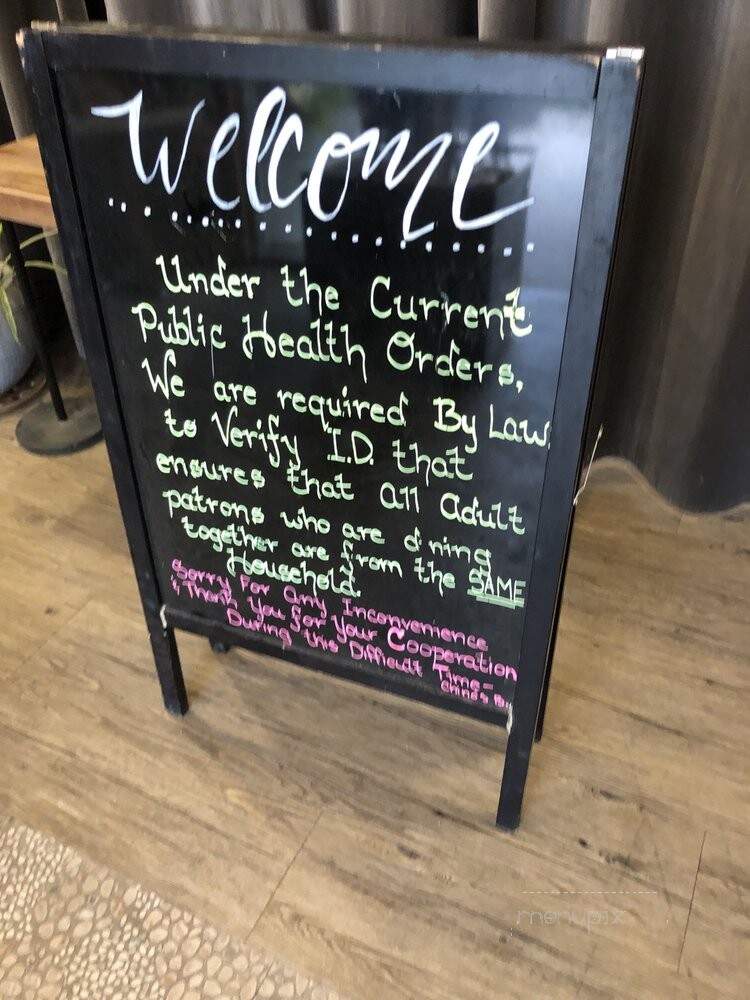 Welcome
Under the Current
Public Health Orders,
We are required By Law
to Verify I.D. that
ensures that all adult
patrons who are dining
together are from the SAME
Household.
Sorry For Any Inconvenience
& Thank You For Your Cooperation
During this Difficult Time-
menupix